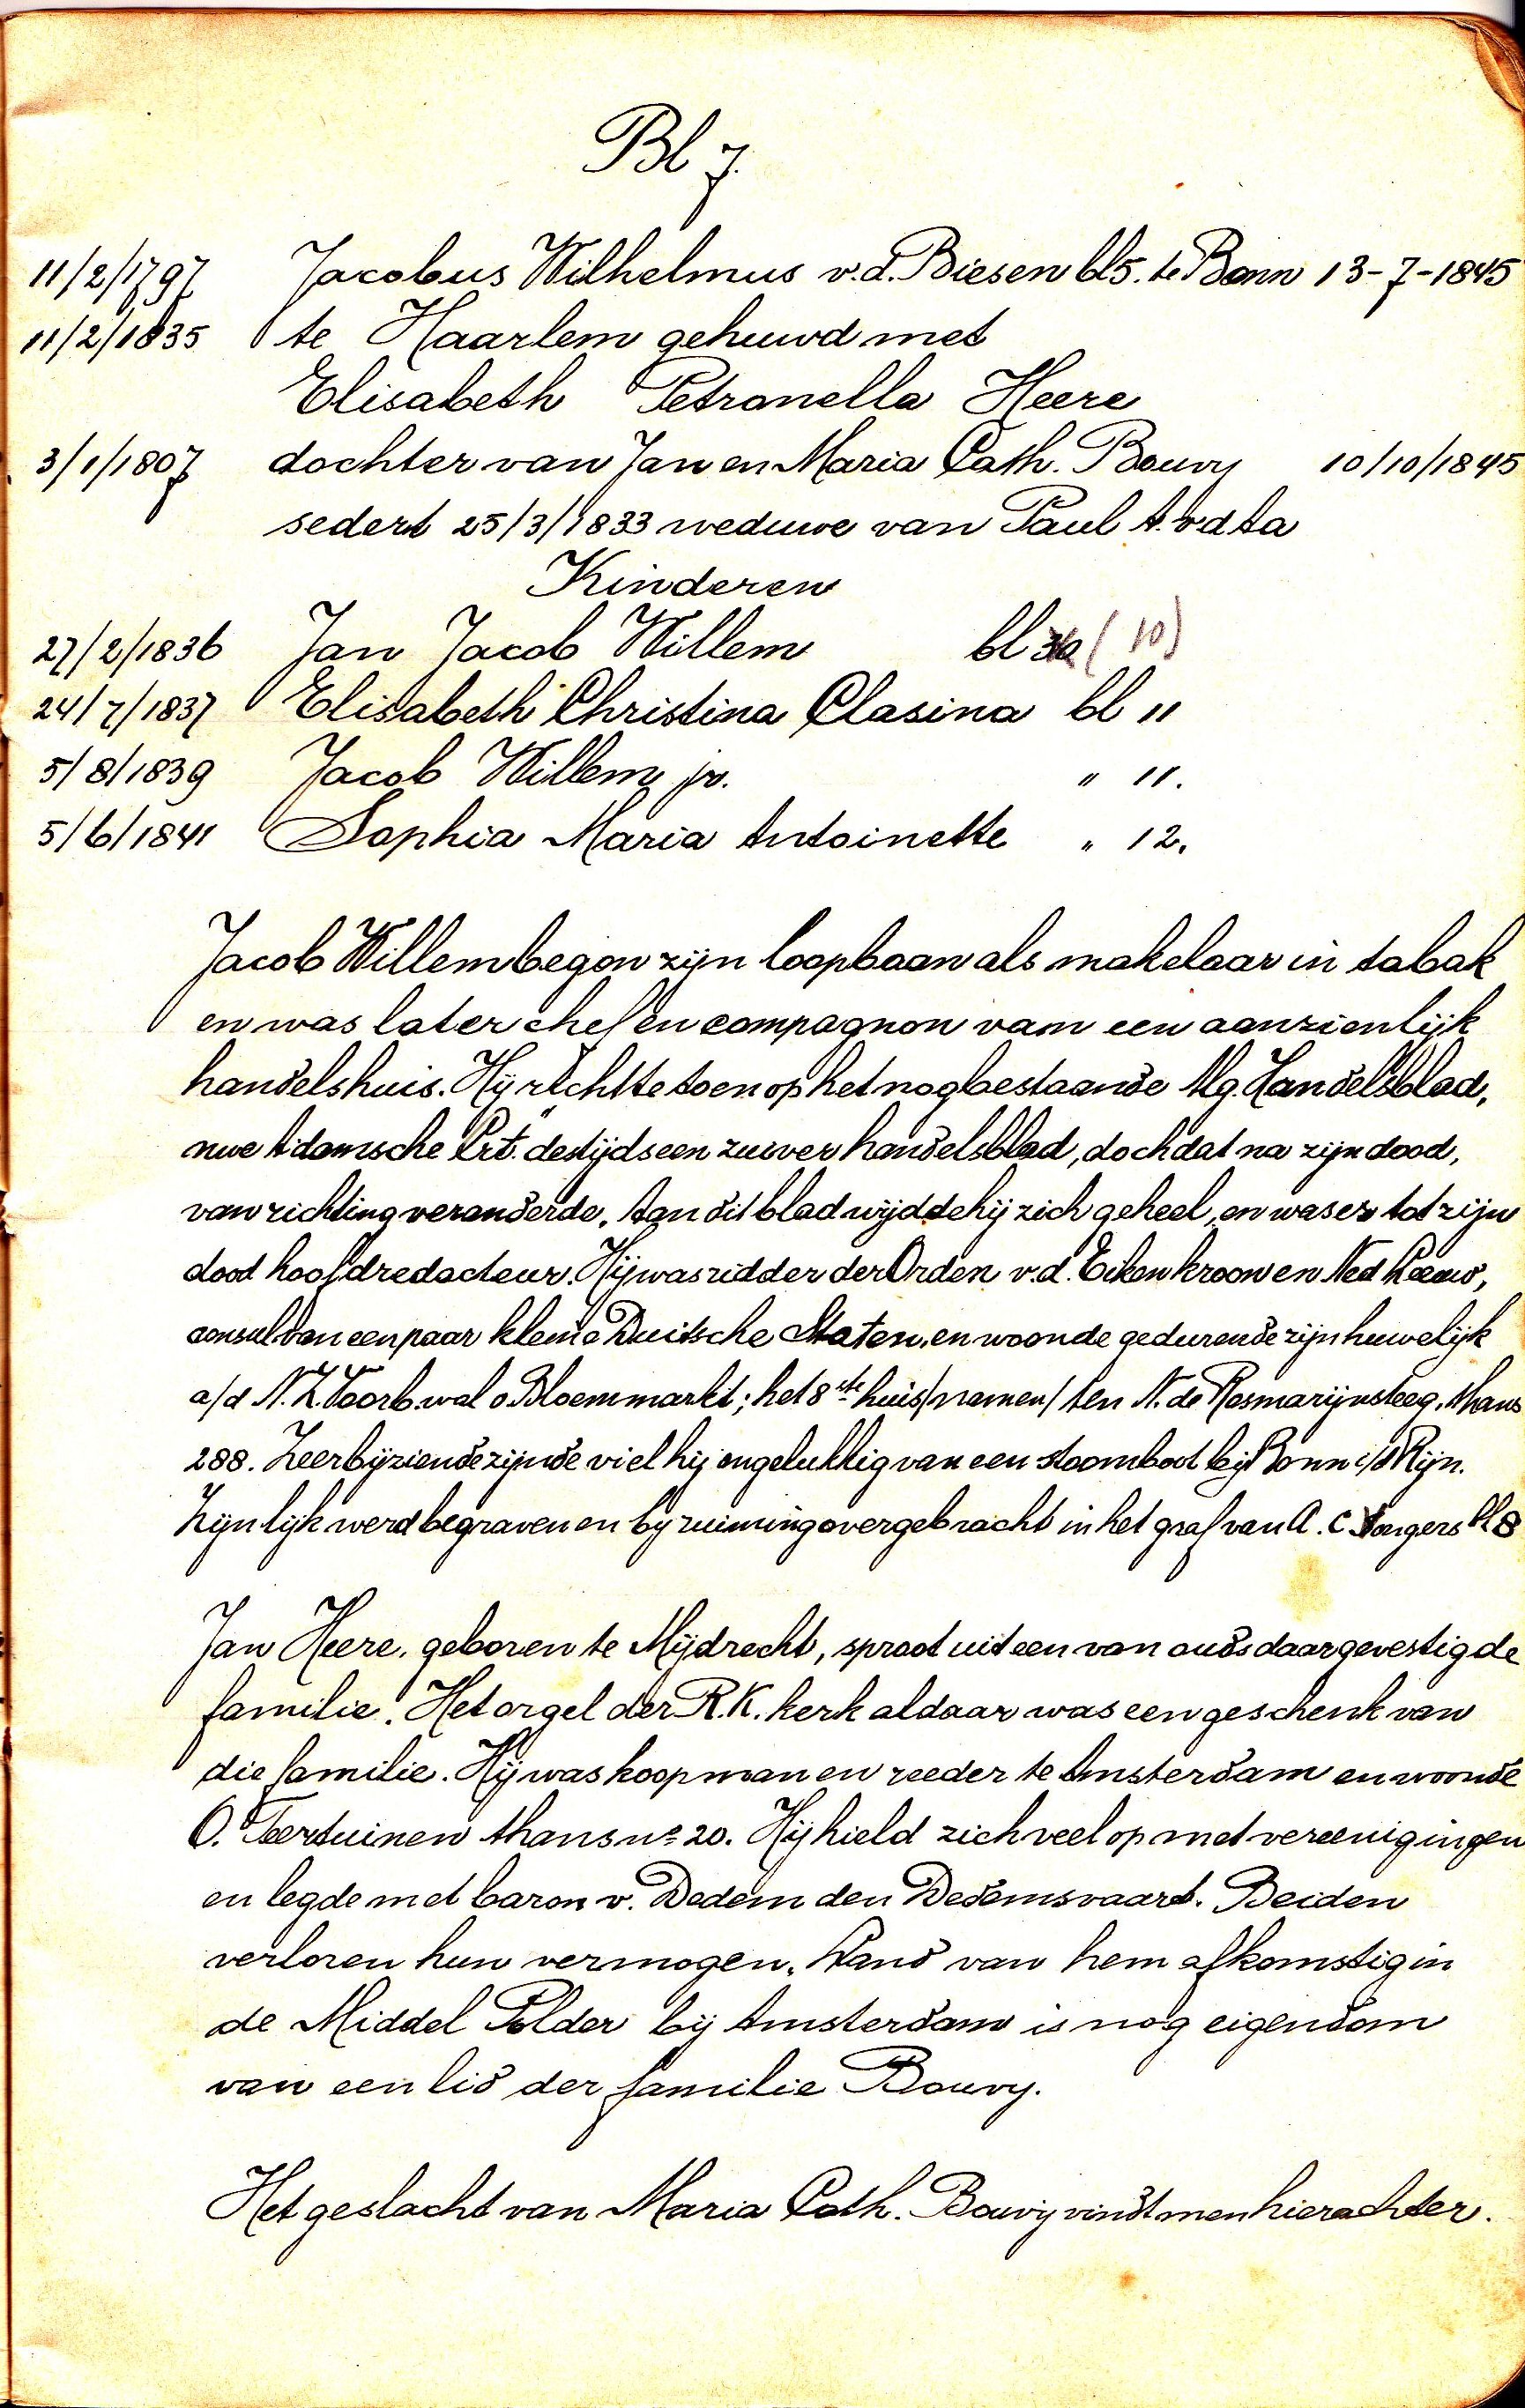 Bl 7.
11/2/1797 Jacobus Wilhelmus v.d. Biesen bl 5. te Bonn 13-7-1845
11/2/1835 te Haarlem gehuwd met
Elisabeth Petronella Heere
3/1/1807 dochter van Jan en Maria Cath. Bouvy 10/10/1845
sedert 25/3/1833 weduwe van Paul A. v.d Aa
Kinderen
27/2/1836 Jan Jacob Willem bl (10)
24/7/1837 Elisabeth Christina Clasina bl 11
5/8/1839 Jacob Willem jr. " 11.
5/6/1841 Sophia Maria Antoinette " 12.
Jacob Willem begon zijn loopbaan als makelaar in tabak
en was later chef en compagnon vam een aanzienlijk
handelshuis. Hij richtte toen op het nog bestaande Alg. Handelsblad,
nwe Adamsche Crt." destijds een zuiver handelsblad, doch dat na zijn dood,
van richting veranderde. Aan dit blad wijdde hij zich geheel, en was er tot zijn
dood hoofdredacteur. Hij was ridder der Orden v.d. Eikenkroon en Ned Leeuw,
consul van een paar kleine Duitsche Staten, en woonde gedurende zijn huwelijk
a/d N.Z. Voorb.wal o Bloemmarkt; het 8ste huis ten N. de Rosmarijnsteeg, thans
288. Zeer bijziende zijnde viel hij ongelukkig van een stoomboot bij Bonn i/d Rijn.
Zijn lijk werd begraven en bij ruiming overgebracht in het graf van A. C. Jongers bl 8
Jan Heere, geboren te Mijdrecht, sproot uit een van ouds daar gevestigde
familie. Het orgel der R.K. kerk aldaar was een geschenk van
die familie. Hij was koopman en reeder te Amsterdam en woonde
O. Teertuinen thans no 20. Hij hield zich veel op met vereenigingen
en legde met baron v. Dedem den Dedemsvaart. Beiden
verloren hun vermogen. Land van hem afkomstig in
de Middel Polder bij Amsterdam is nog eigendom
van een lid der familie Bouvy.
Het geslacht van Maria Cath. Bouvij vindt men hierachter.